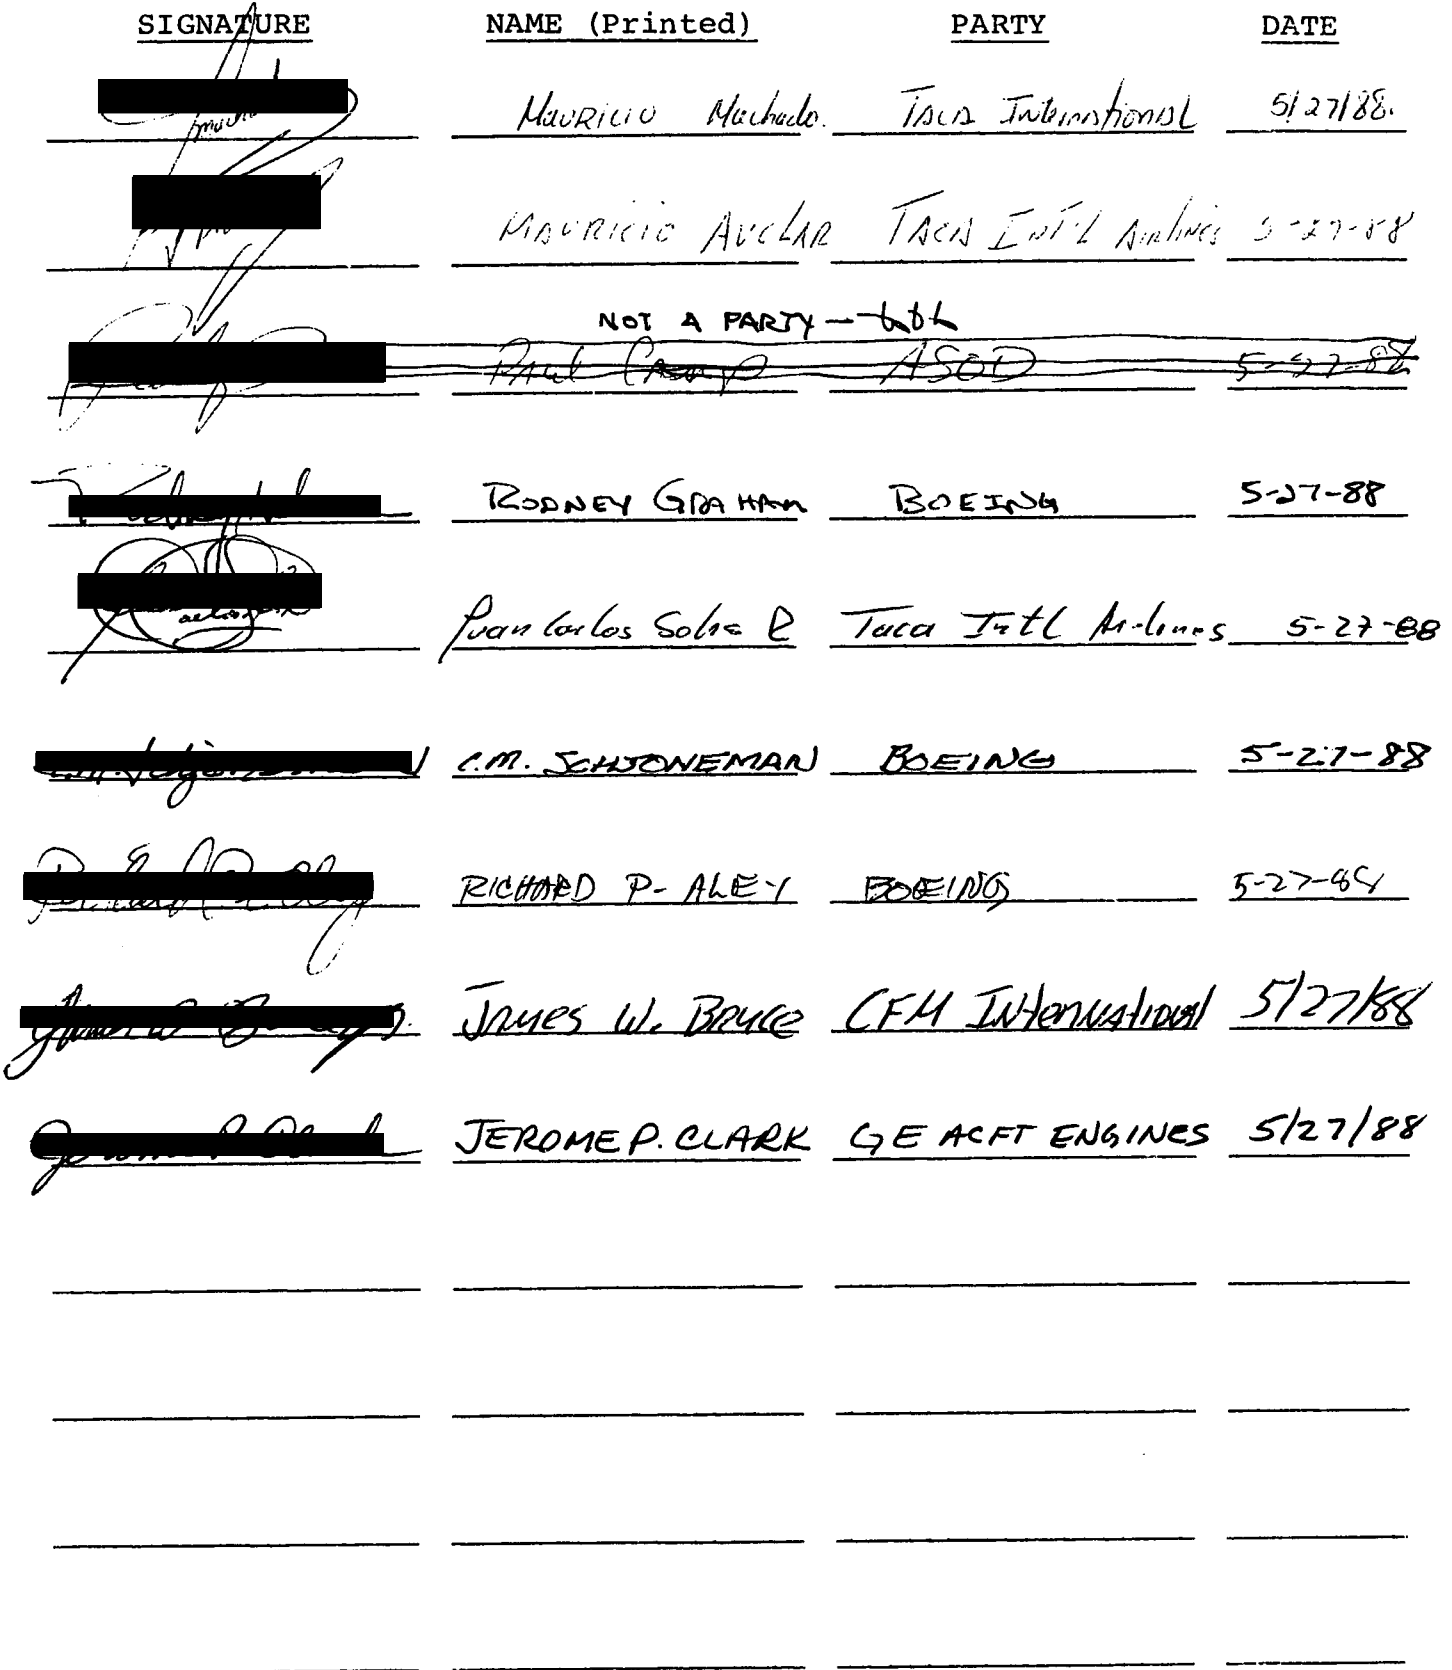 SIGNATURE NAME (Printed) PARTY DATE
Mauricio Machado. TACA International 5/27/88.
MAURICIO AVELAR TACA INT'L Airlines 5-27-88
NOT A PARTY —
Paul Camp ASOD 5-27-88
RODNEY GRAHAM BOEING 5-27-88
Juan Carlos R Taca Intl Airlines 5-27-88
C.M. SCHJONEMAN BOEING 5-27-88
RICHARD P. ALEY BOEING 5-27-88
JAMES W. BRUCE CFM INTERNATIONAL 5/27/88
JEROME P. CLARK GE ACFT ENGINES 5/27/88